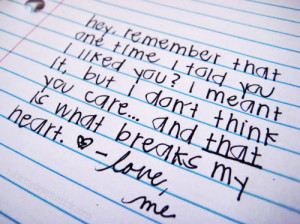 hey, remember that
one time I told you
I liked you? I meant
it, but I don't think
you care... and that
is what breaks my
heart. ♡ -love,
me